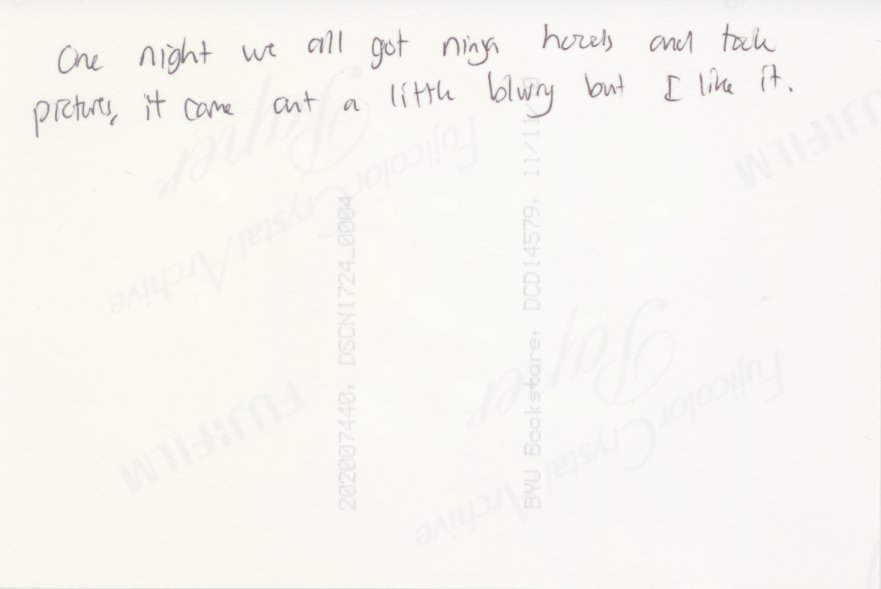 One night we all got ninja hoods and took
pictures, it came out a little blurry but I like it.
FUJIFILM
Fujicolor Crystal Archive
Paper
202007440, DSCN1724_0004
BYU Bookstore, DCD14579, 11/11
FUJIFILM
Fujicolor Crystal Archive
Paper